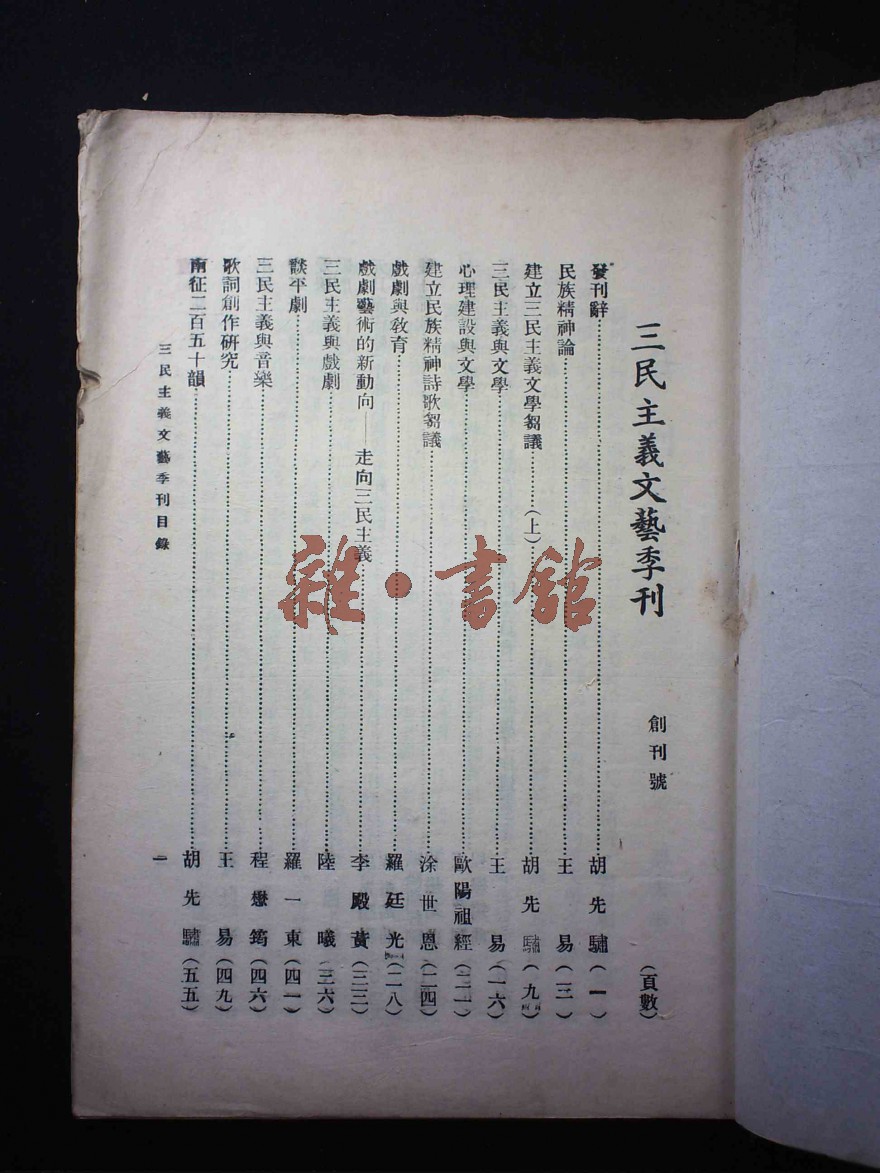 三民主義文藝季刊 創刊號 (頁數)
發刊辭 胡先驌 (一)
民族精神論 王易 (三)
建立三民主義文學芻議 (上) 胡先驌 (九)
三民主義與文學 王易 (一六)
心理建設與文學 歐陽祖經 (二一)
建立民族精神詩歌芻議 涂世恩 (二四)
戲劇與教育 羅廷光 (二八)
戲劇藝術的新動向——走向三民主義 李殿蓂 (三三)
三民主義與戲劇 陸曦 (三六)
談平劇 羅一東 (四一)
三民主義與音樂 程懋筠 (四六)
歌詞創作研究 王易 (四九)
南征二百五十韻 胡先驌 (五五)
三民主義文藝季刊目錄 一
雜·書館